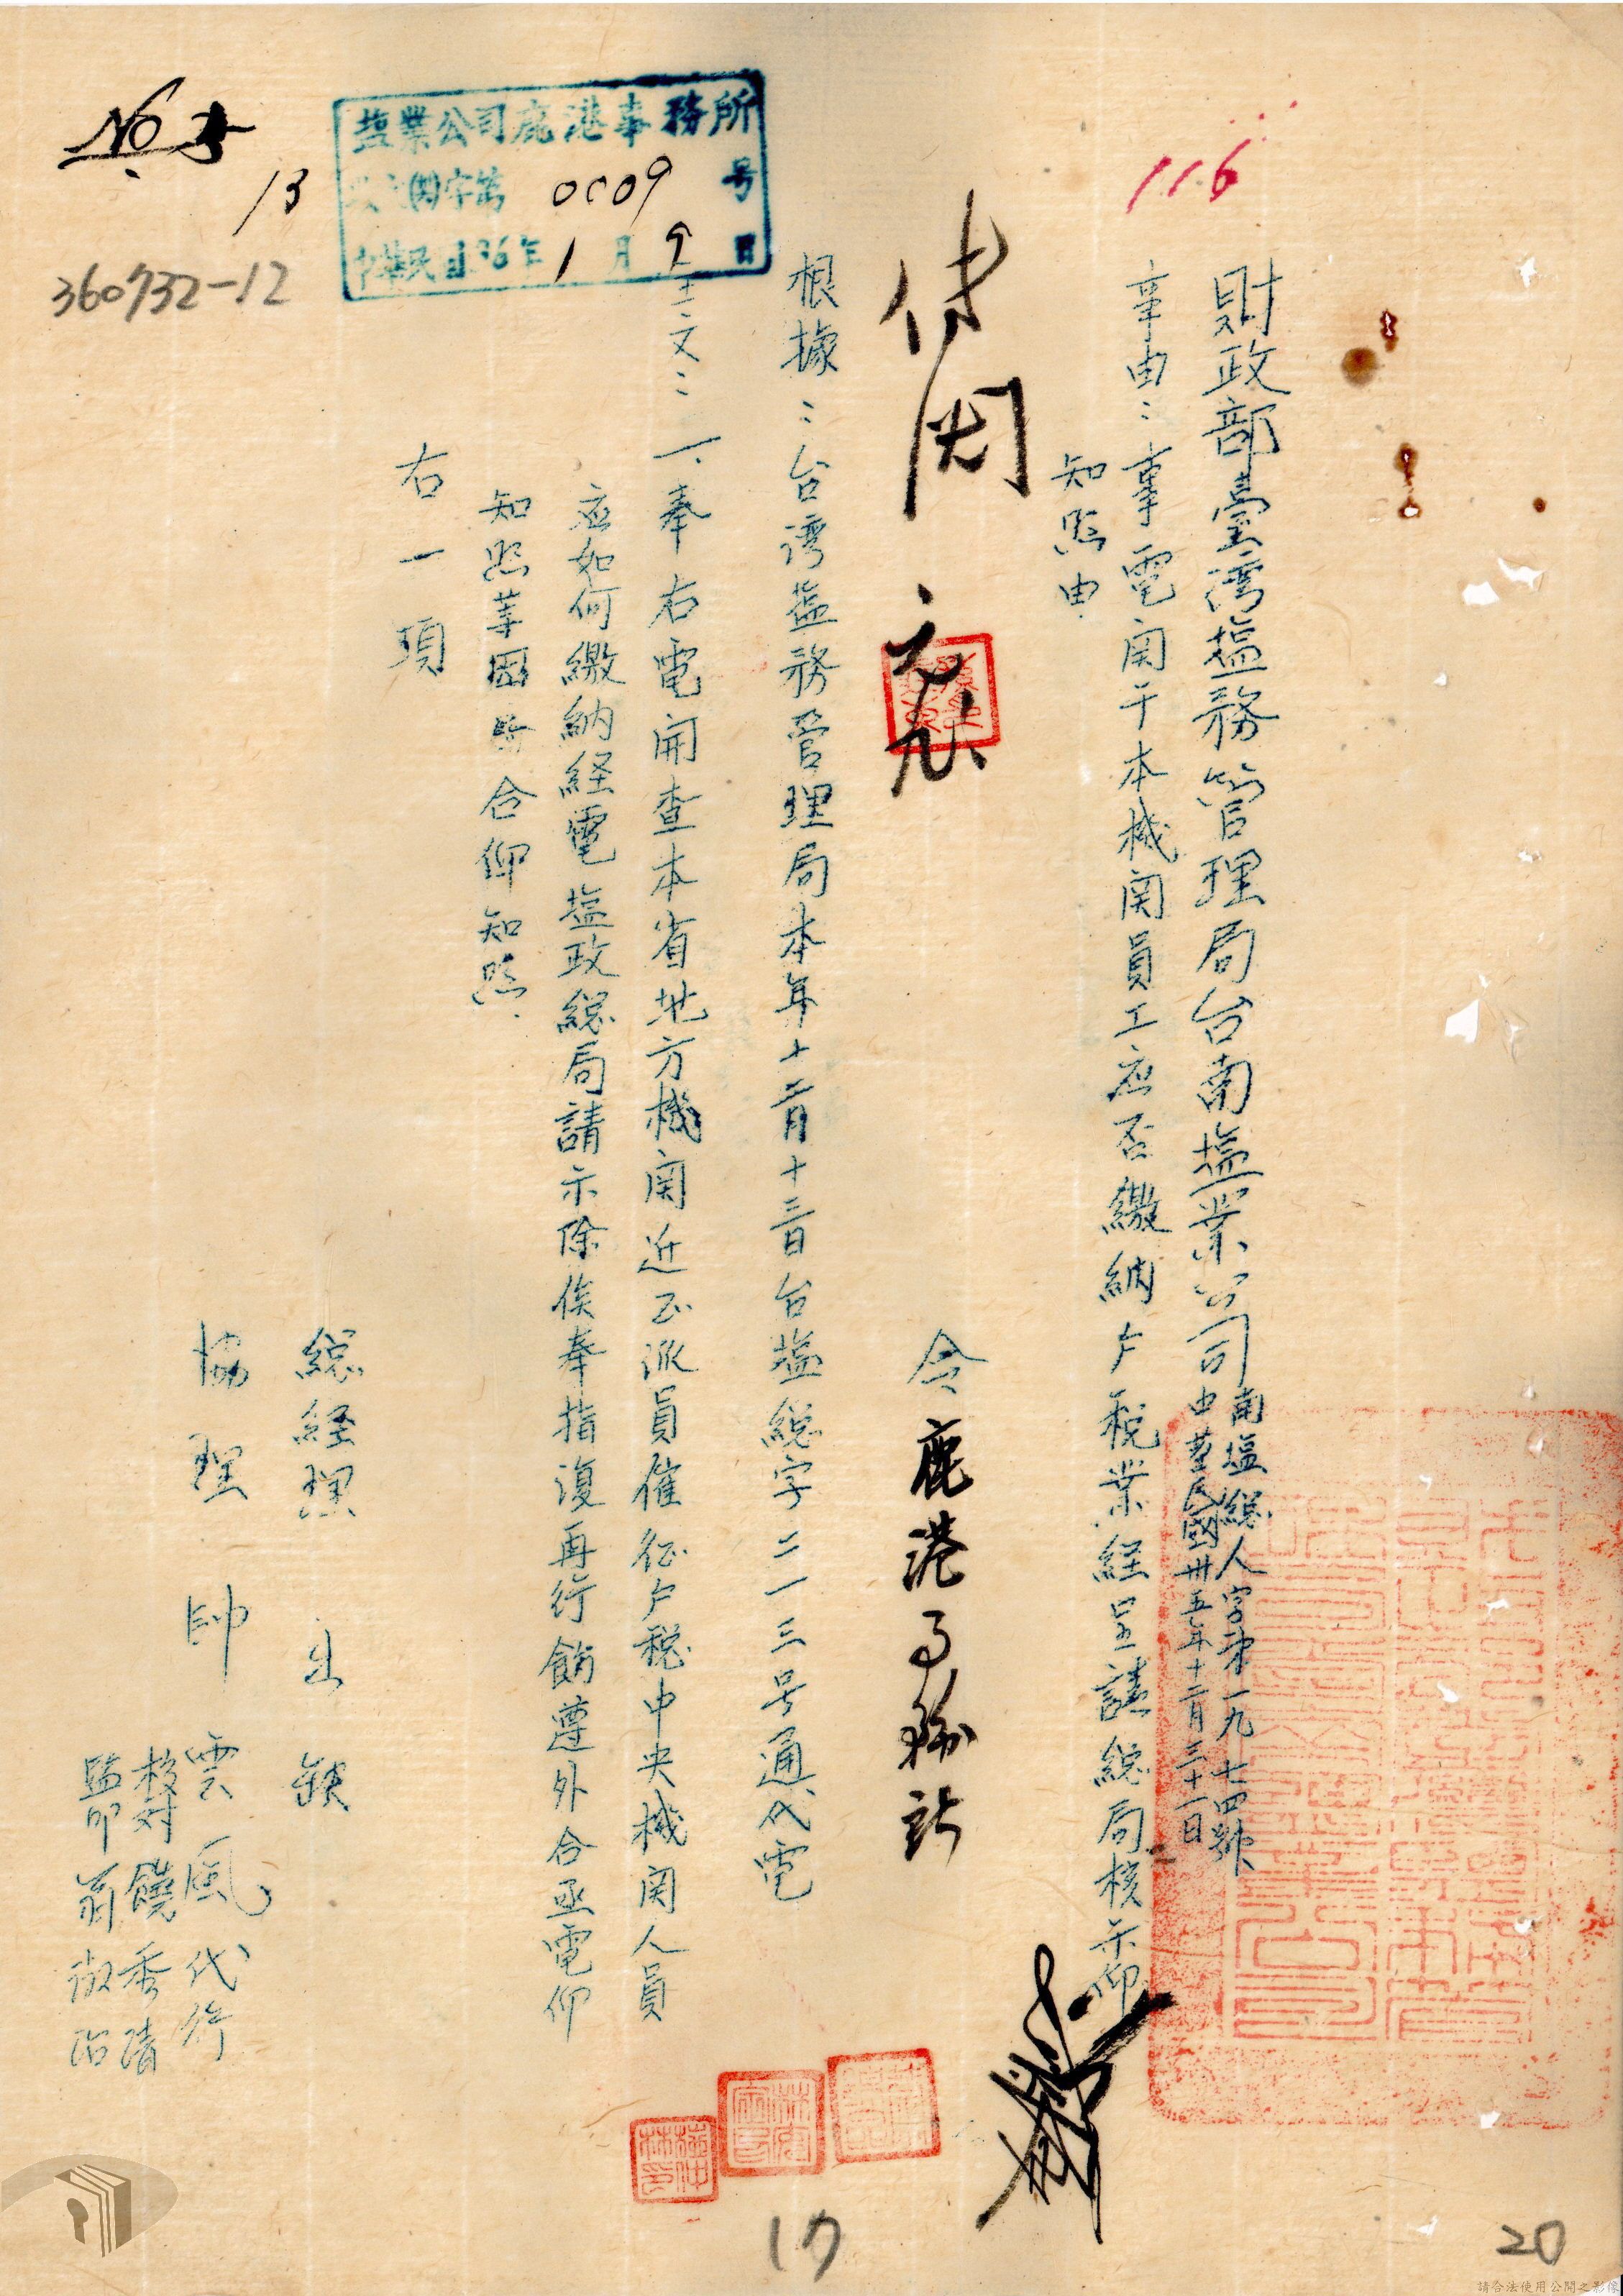 財政部臺湾塩務管理局台南塩業公司
南塩総人字第一九七四號
中華民國卅五年十二月三十一日
事由：事電関于本機関員工应否繳納户税業経呈請総局核示仰
知照由
116
令鹿港事務所
傅閲
根據：台湾塩務管理局本年十二月十三日台塩総字二一三号通代電
主文：一、奉右電開查本省地方機関近正派員催征户税中央機関人員
应如何繳納経電塩政総局請示除俟奉指復再行飭遵外合亟電仰
知照等因合仰知照
右一項
総経理 出缺
協理 帥雲風代行
校对 饒秀清
監印 翁淑治
塩業公司鹿港事務所
字第 0009 号
中華民国36年1月9日
No.
13
360732-12
17
20
請合法使用公開之影像